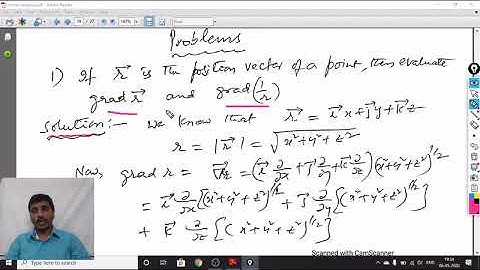 Problems
1) If r⃗ is the position vector of a point, then evaluate
grad r⃗ and grad(1/r)
Solution:- We know that r⃗ = i⃗x + j⃗y + k⃗z
r = |r⃗| = √x²+y²+z²
Now, grad r = ∇⃗r = (i⃗ ∂/∂x + j⃗ ∂/∂y + k⃗ ∂/∂z)(x²+y²+z²)^1/2
= i⃗ ∂/∂x [(x²+y²+z²)^1/2] + j⃗ ∂/∂y [(x²+y²+z²)^1/2]
+ k⃗ ∂/∂z [(x²+y²+z²)^1/2]
Scanned with CamScanner
Type here to search